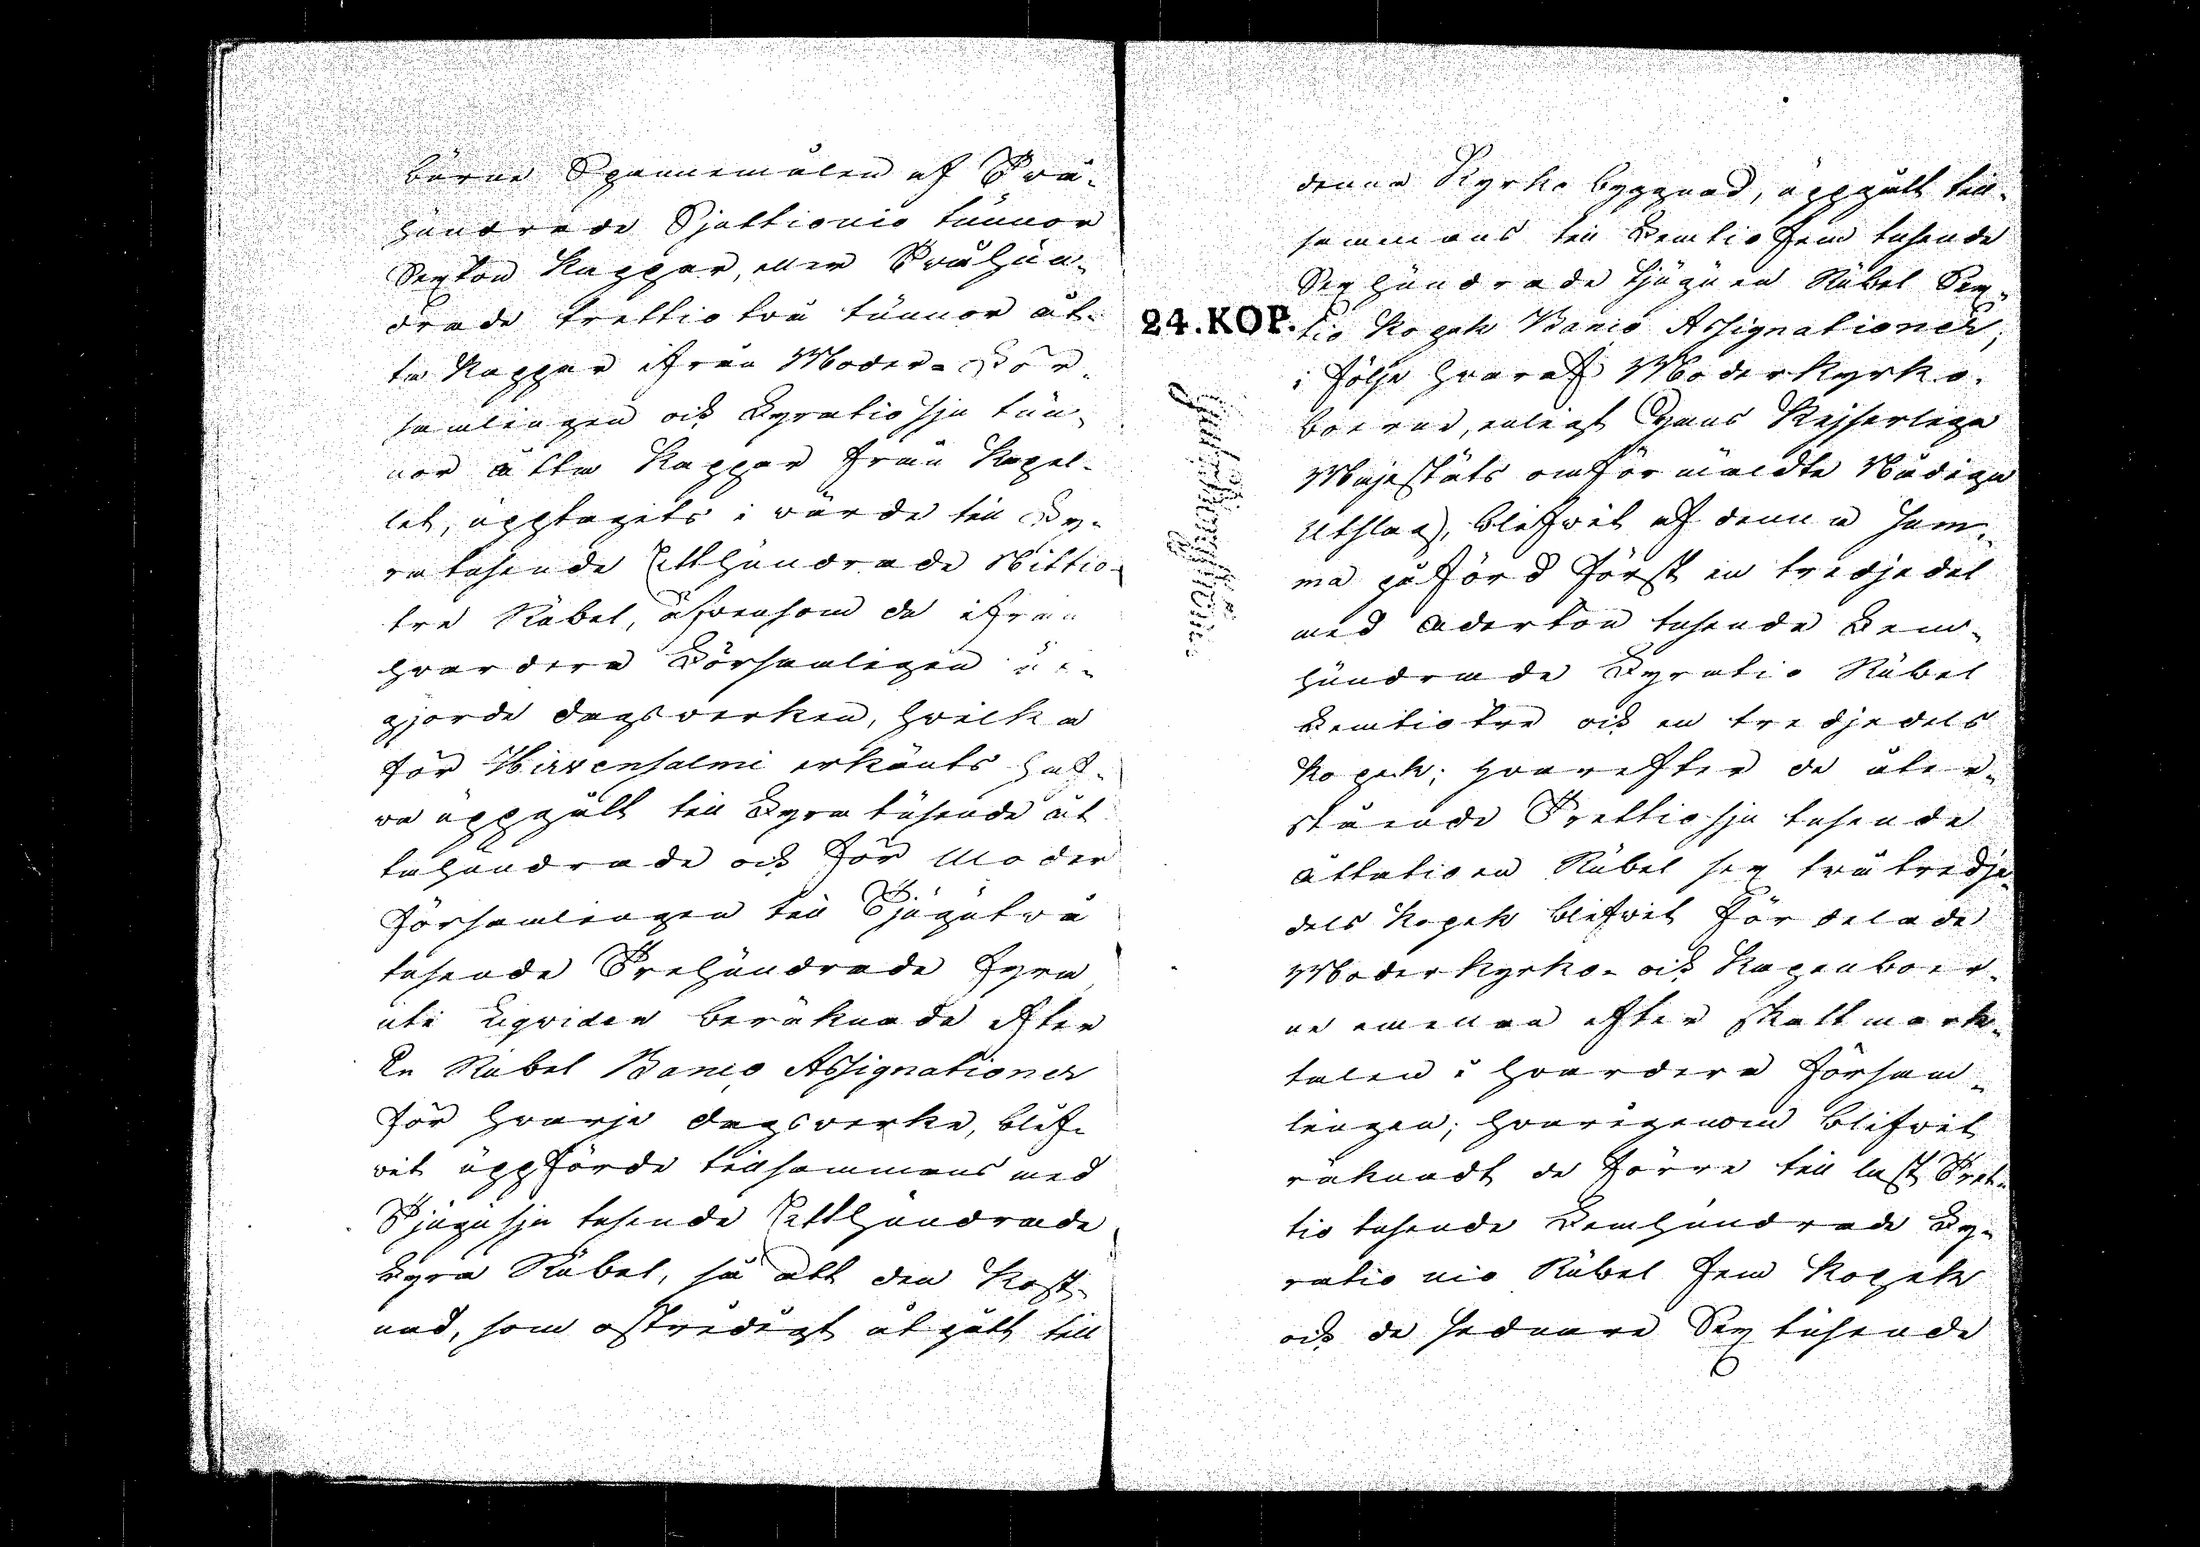 burne Spannemålen af Två-
hundrade Sjuttionio tunnor
Sexton Kappar, eller Tvåhun-
drade trettiotvå tunnor åt-
ta Kappar ifrån Moder-För-
samlingen och Fyratiosju tun-
nor åtta Kappar från Kapel-
let, upptagits i värde till Fy-
ratusende Etthundrade Nittio-
tre Rubel, äfvensom de ifrån
hvardera Församlingen ut-
gjorde dagsverken, hvilka
för Hirvensalmi erkänts haf-
va uppgått till Fyratusende åt-
tahundrade och för Moder
församlingen till Tjugutvå
tusende Trehundrade fyra,
uti Liqviden beräknade efter
En Rubel Banco Assignationer
för hvarje dagsverke, blif-
vit uppförde tillsammans med
Tjugusju tusende Etthundrade
Fyra Rubel, så att den Kost-
nad, som ostridigt åtgått till
denna Kyrkobyggnad, uppgått till-
sammans till Femtiofem tusende
Sexhundrade tjuguen Rubel Sex-
24.KOP.
tio Kopek Banco Assignationer;
i följe hvaraf Moderkyrko-
boerne, enligt Hans Kejserliga
Majestäts omförmäldte Nådiga
Utslag, blifvit af denna sum-
ma påförd först en tredjedel
med Aderton tusende Fem-
hundrade Fyratio Rubel
Femtiotre och en tredjedels
Kopek; hvarefter de åter-
stående Trettiosju tusende
åttatioen Rubel sex två tredje-
dels Kopek blifvit fördelade
Moderkyrko- och Kapellboer-
ne emellan efter Skattmark-
talen i hvardera försam-
lingen; hvarigenom blifvit
räknadt de förre till last Tret-
tio tusende Femhundrade Fy-
ratio nio Rubel fem Kopek
och de sednare Sex tusende